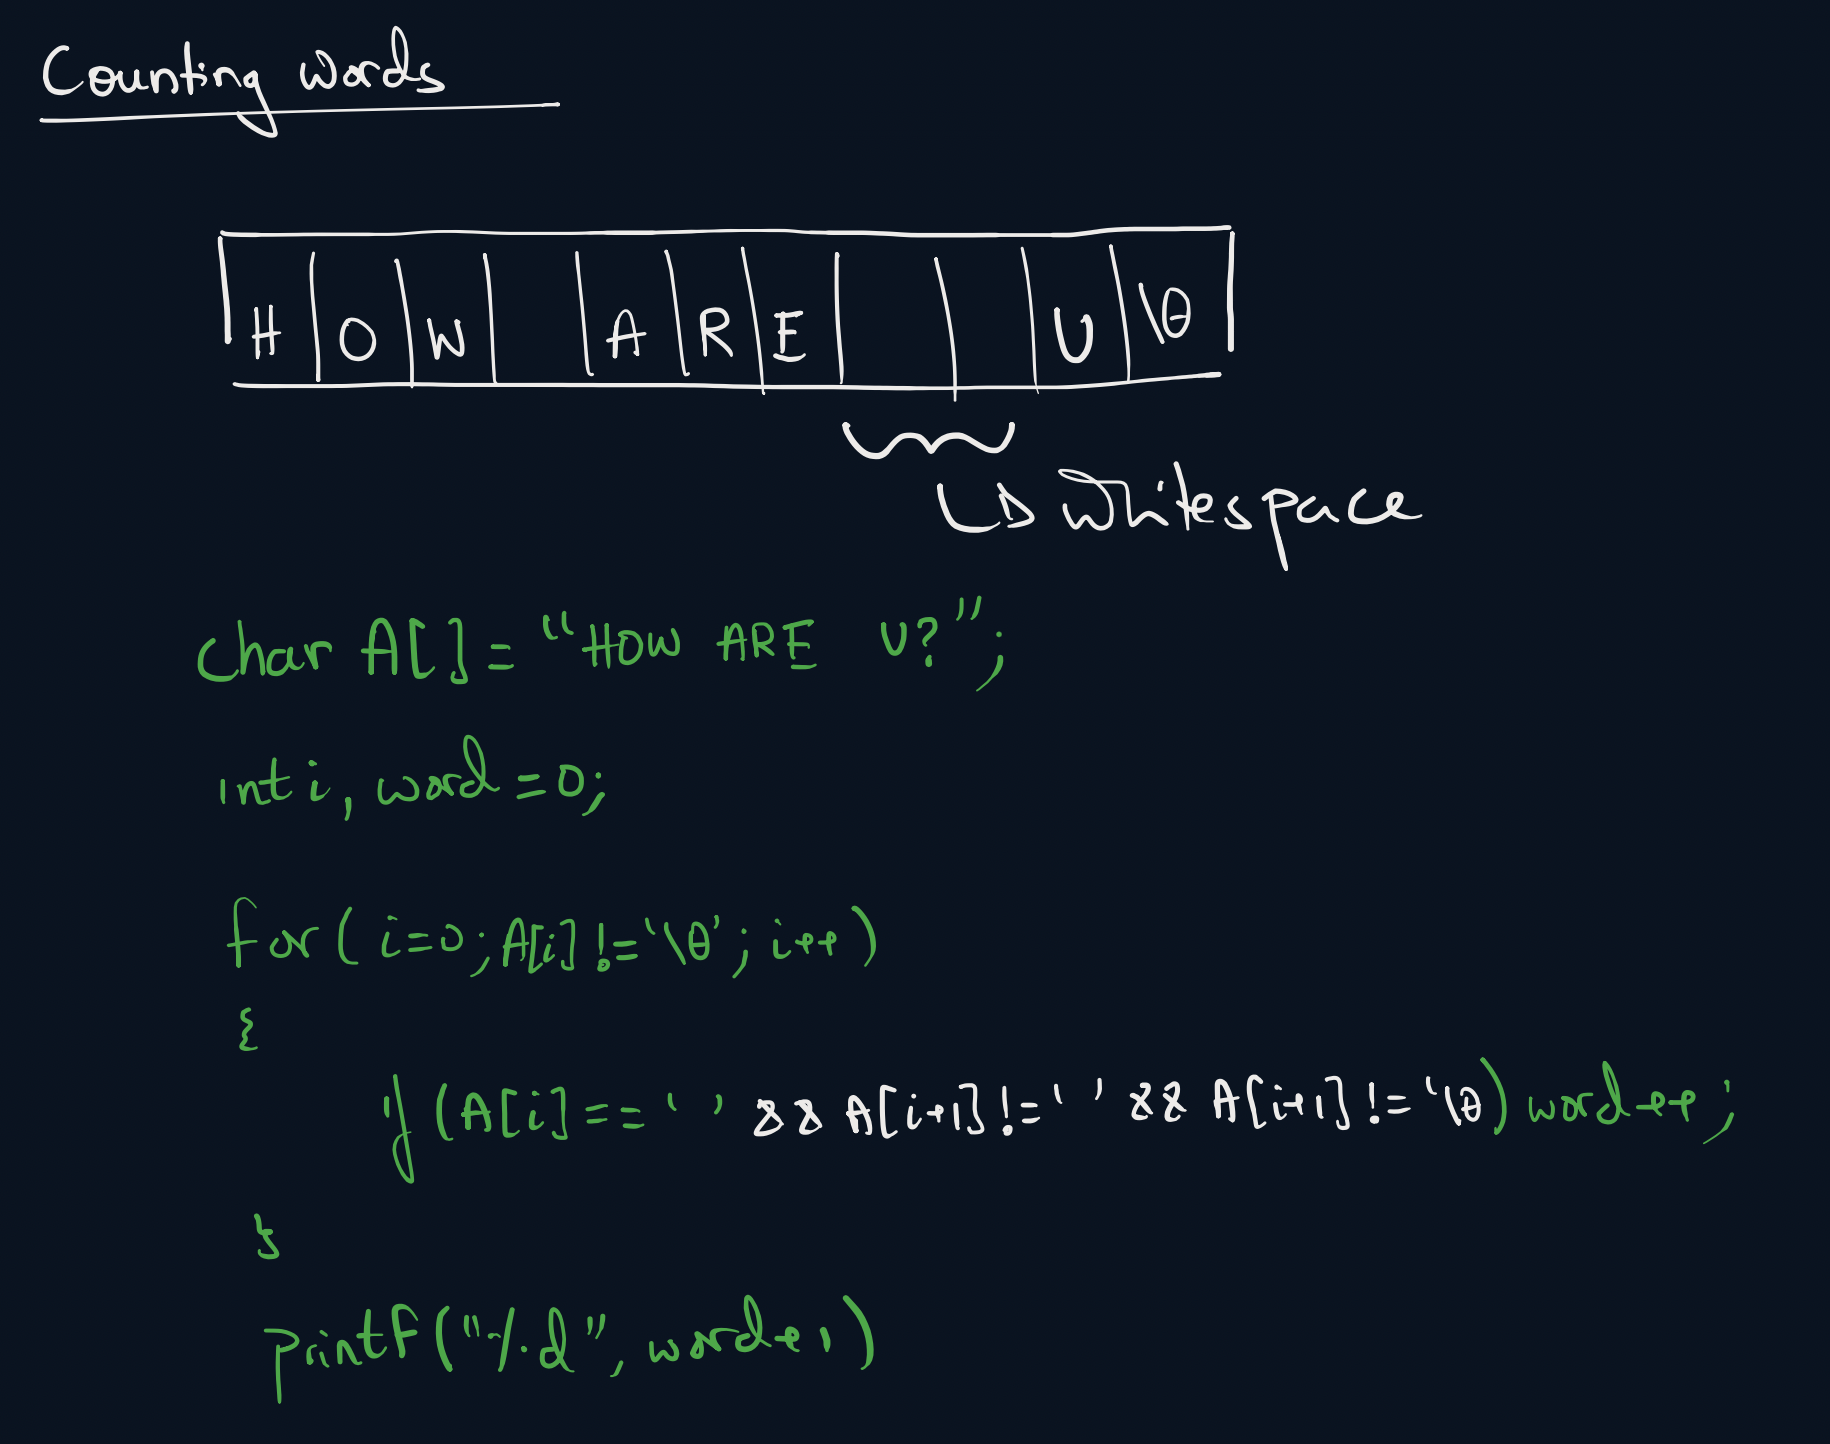 Counting words
H O W A R E U \0
whitespace
char A[] = "HOW ARE  U?";
int i, word = 0;
for( i=0; A[i] != '\0'; i++)
{
if (A[i] == ' ' && A[i+1] != ' ' && A[i+1] != '\0) word++;
}
printf("%d", word+1)